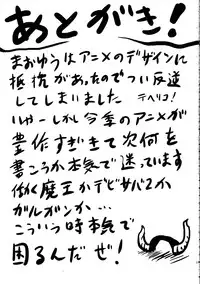 あとがき!
まおゆうはアニメのデザインに
抵抗があったのでつい反逆
してしまいました テヘペロ!
しかし今季のアニメが
豊作すぎて次何を
書こうか本気で迷っています
働く魔王かデビサバ2か
ガルガンか…
こういう時本気で
困るんだぜ!